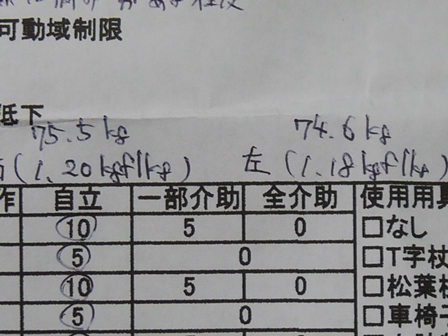 可動域制限
低下
75.5kg 74.6kg
(1.20kgf/kg) 左(1.18kgf/kg)
作 自立 一部介助 全介助 使用用具
10 5 0 □なし
5 0 □T字杖
10 5 0 □松葉杖
5 0 □車椅子